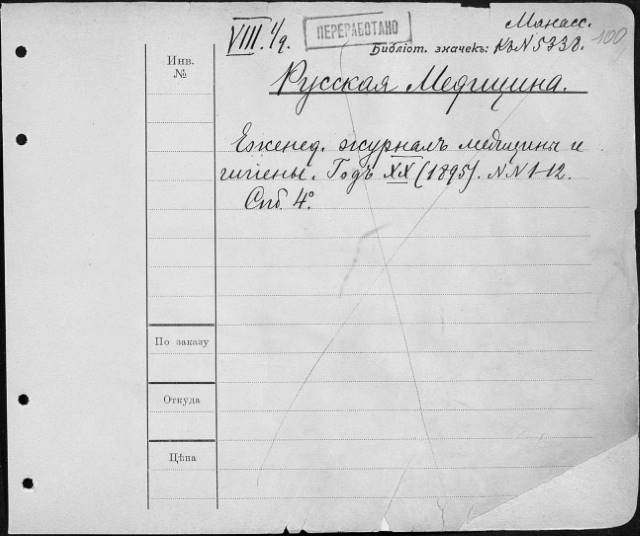 Манасс.
VIII. 1/9.
ПЕРЕРАБОТАНО
Библіот. значекъ: Къ N 5338.
100
Инв.
№
Русская Медицина.
Еженед. журналъ медицины и
гигіены. Годъ XX (1895). NN 1-12.
Спб. 4°.
По заказу
Откуда
Цѣна